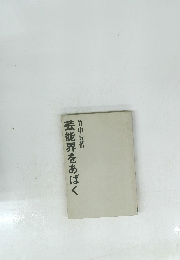 芸能界をあばく
竹中労著